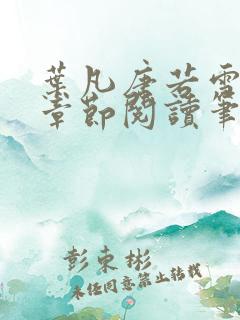 葉凡唐若雪
章節閱讀筆
彭東彬
未经同意禁止转载